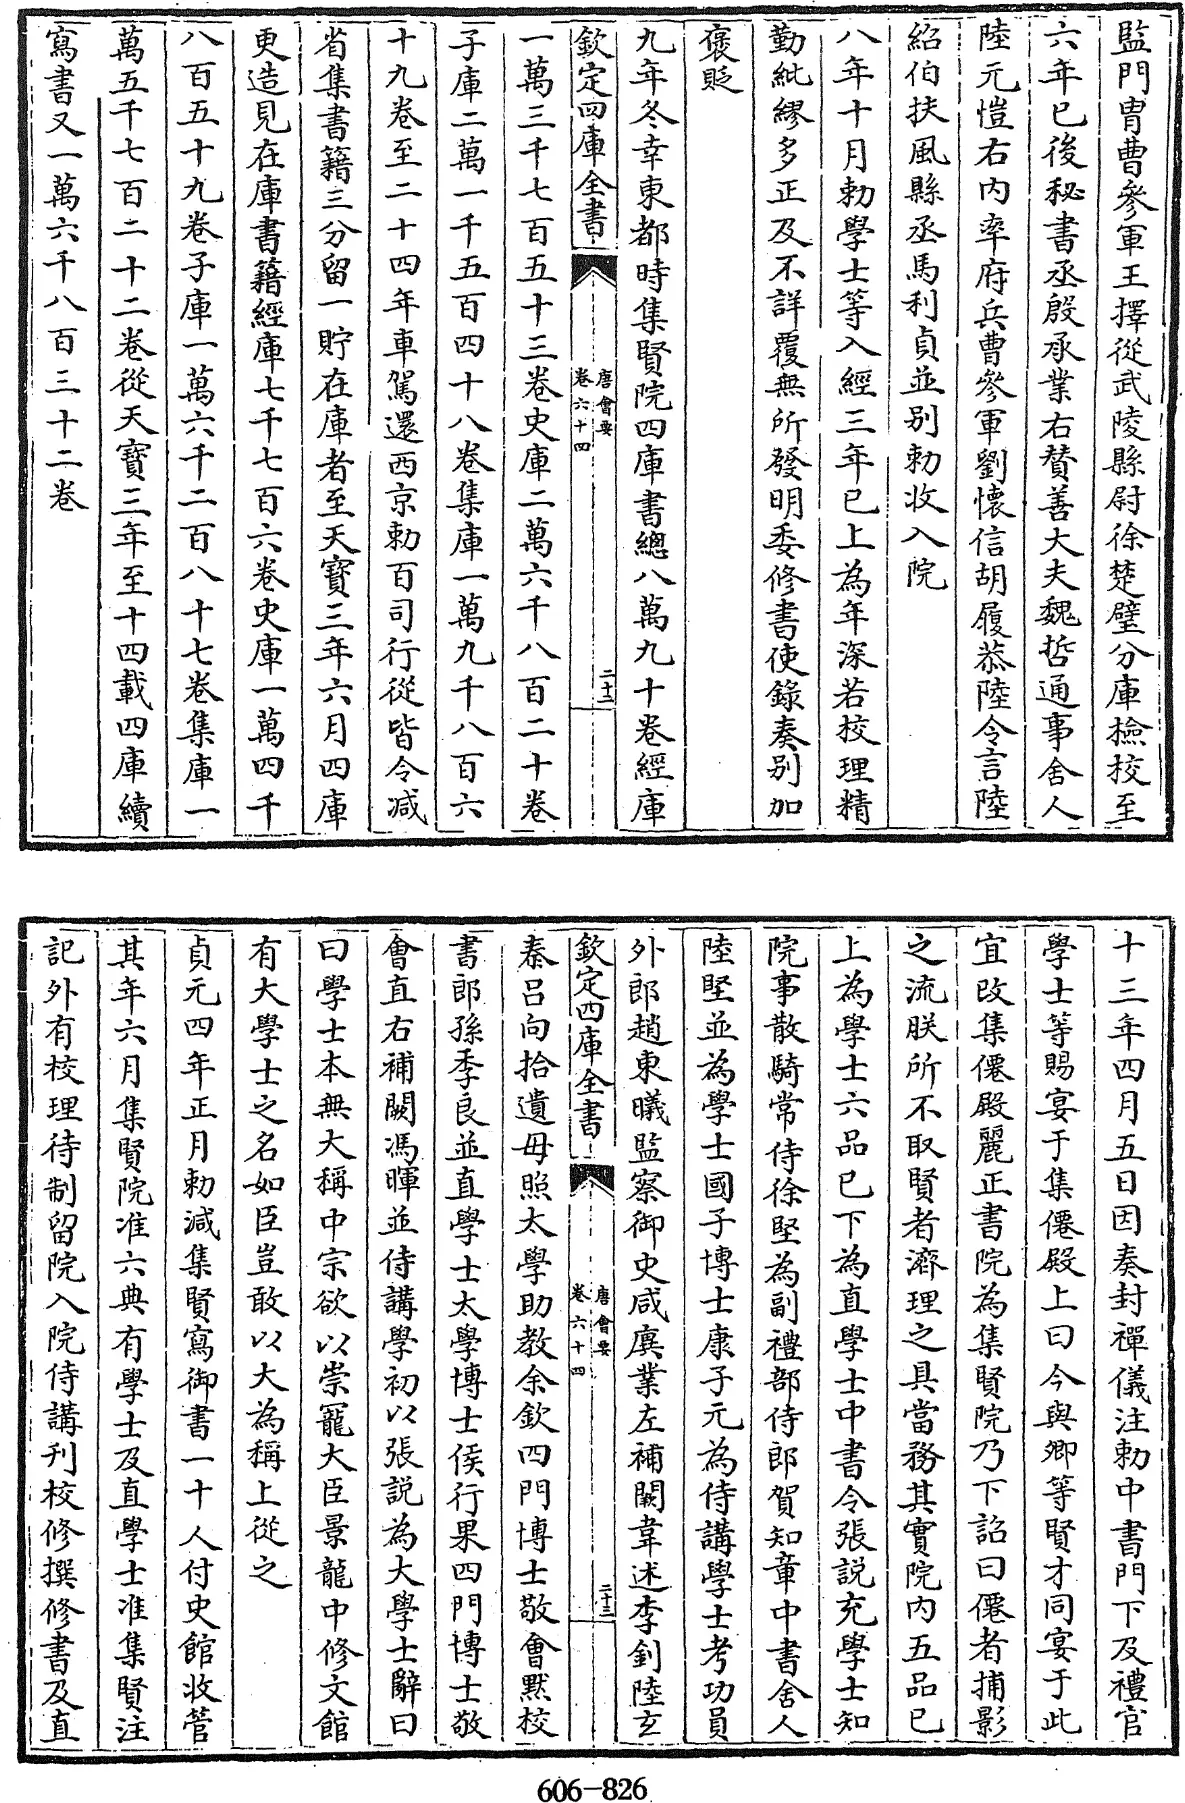 監門胄曹參軍王擇從武陵縣尉徐楚璧分庫檢校至
六年已後秘書丞殷承業右贊善大夫魏哲通事舍人
陸元愷右内率府兵曹參軍劉懷信胡履恭陸令言陸
紹伯扶風縣丞馬利貞並别勅收入院
八年十月勅學士等入經三年已上為年深若校理精
勤紕繆多正及不詳覆無所發明委修書使錄奏别加
褒貶
九年冬幸東都時集賢院四庫書總八萬九十卷經庫
欽定四庫全書
唐會要
卷六十四
二十二
一萬三千七百五十三卷史庫二萬六千八百二十卷
子庫二萬一千五百四十八卷集庫一萬九千八百六
十九卷至二十四年車駕還西京勅百司行從皆令减
省集書籍三分留一貯在庫者至天寶三年六月四庫
更造見在庫書籍經庫七千七百六卷史庫一萬四千
八百五十九卷子庫一萬六千二百八十七卷集庫一
萬五千七百二十二卷從天寶三年至十四載四庫續
寫書又一萬六千八百三十二卷
十三年四月五日因奏封禪儀注勅中書門下及禮官
學士等賜宴于集僊殿上曰今與卿等賢才同宴于此
宜改集僊殿麗正書院為集賢院乃下詔曰僊者捕影
之流朕所不取賢者濟理之具當務其實院内五品已
上為學士六品已下為直學士中書令張説充學士知
院事散騎常侍徐堅為副禮部侍郎賀知章中書舍人
陸堅並為學士國子博士康子元為侍講學士考功員
外郎趙東曦監察御史咸廙業左補闕韋述李釗陸玄
欽定四庫全書
唐會要
卷六十四
二十三
泰吕向拾遺毋照太學助教余欽四門博士敬會默校
書郎孫季良並直學士太學博士侯行果四門博士敬
會直右補闕馮暉並侍講學初以張説為大學士辭曰
曰學士本無大稱中宗欲以崇寵大臣景龍中修文館
有大學士之名如臣豈敢以大為稱上從之
貞元四年正月勅減集賢寫御書一十人付史館收管
其年六月集賢院准六典有學士及直學士准集賢注
記外有校理待制留院入院侍講刋校修撰修書及直
606-826